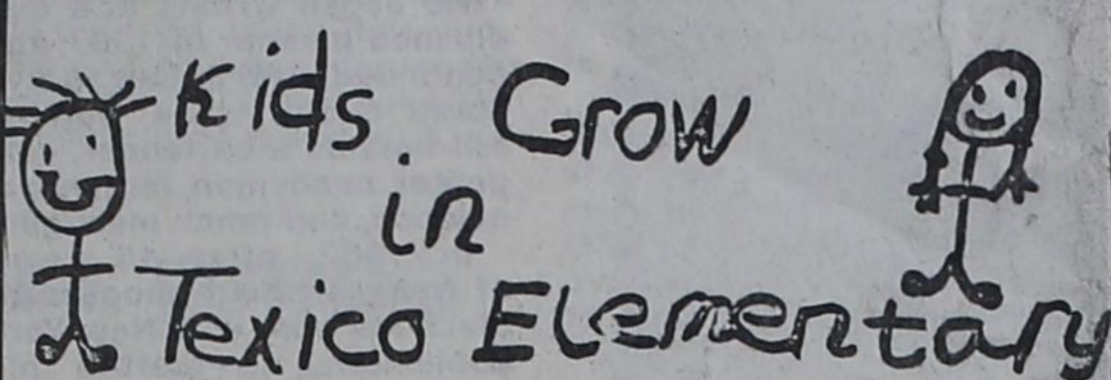 Kids Grow
in
Texico Elementary